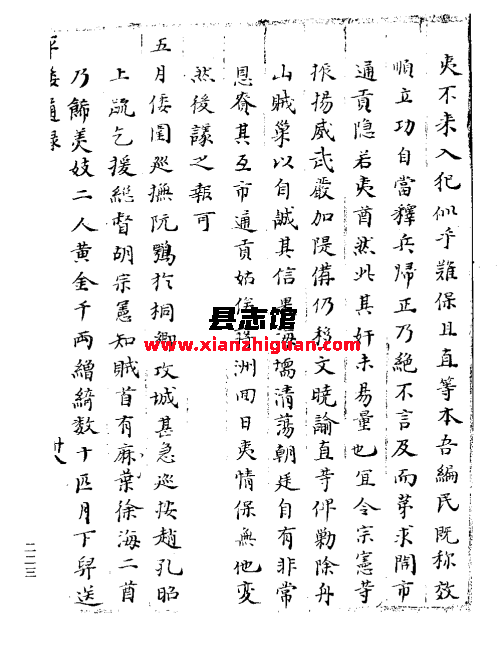 夷不来入犯似乎难保且直等本吾編民既称效
順立功自當釋兵歸正乃絶不言及而苐求開市
通貢隐若夷酋然此其奸未易量也宜令宗憲等
振揚威武嚴加隄備仍移文曉諭直等俾勦除舟
山贼巢以自誠其信果海壖清蕩朝廷自有非常
恩賚其互市通貢姑俟蒋洲囬日夷情保無他变
然後議之報可
五月倭圍巡撫阮鶚扵桐鄉攻城甚急巡按趙孔昭
上疏乞援總督胡宗憲知贼首有麻葉徐海二酋
乃飾美妓二人黄金千両繒綺数十匹月下舁送
平倭通録
廿八
二二三
县志馆
www.xianzhiguan.com